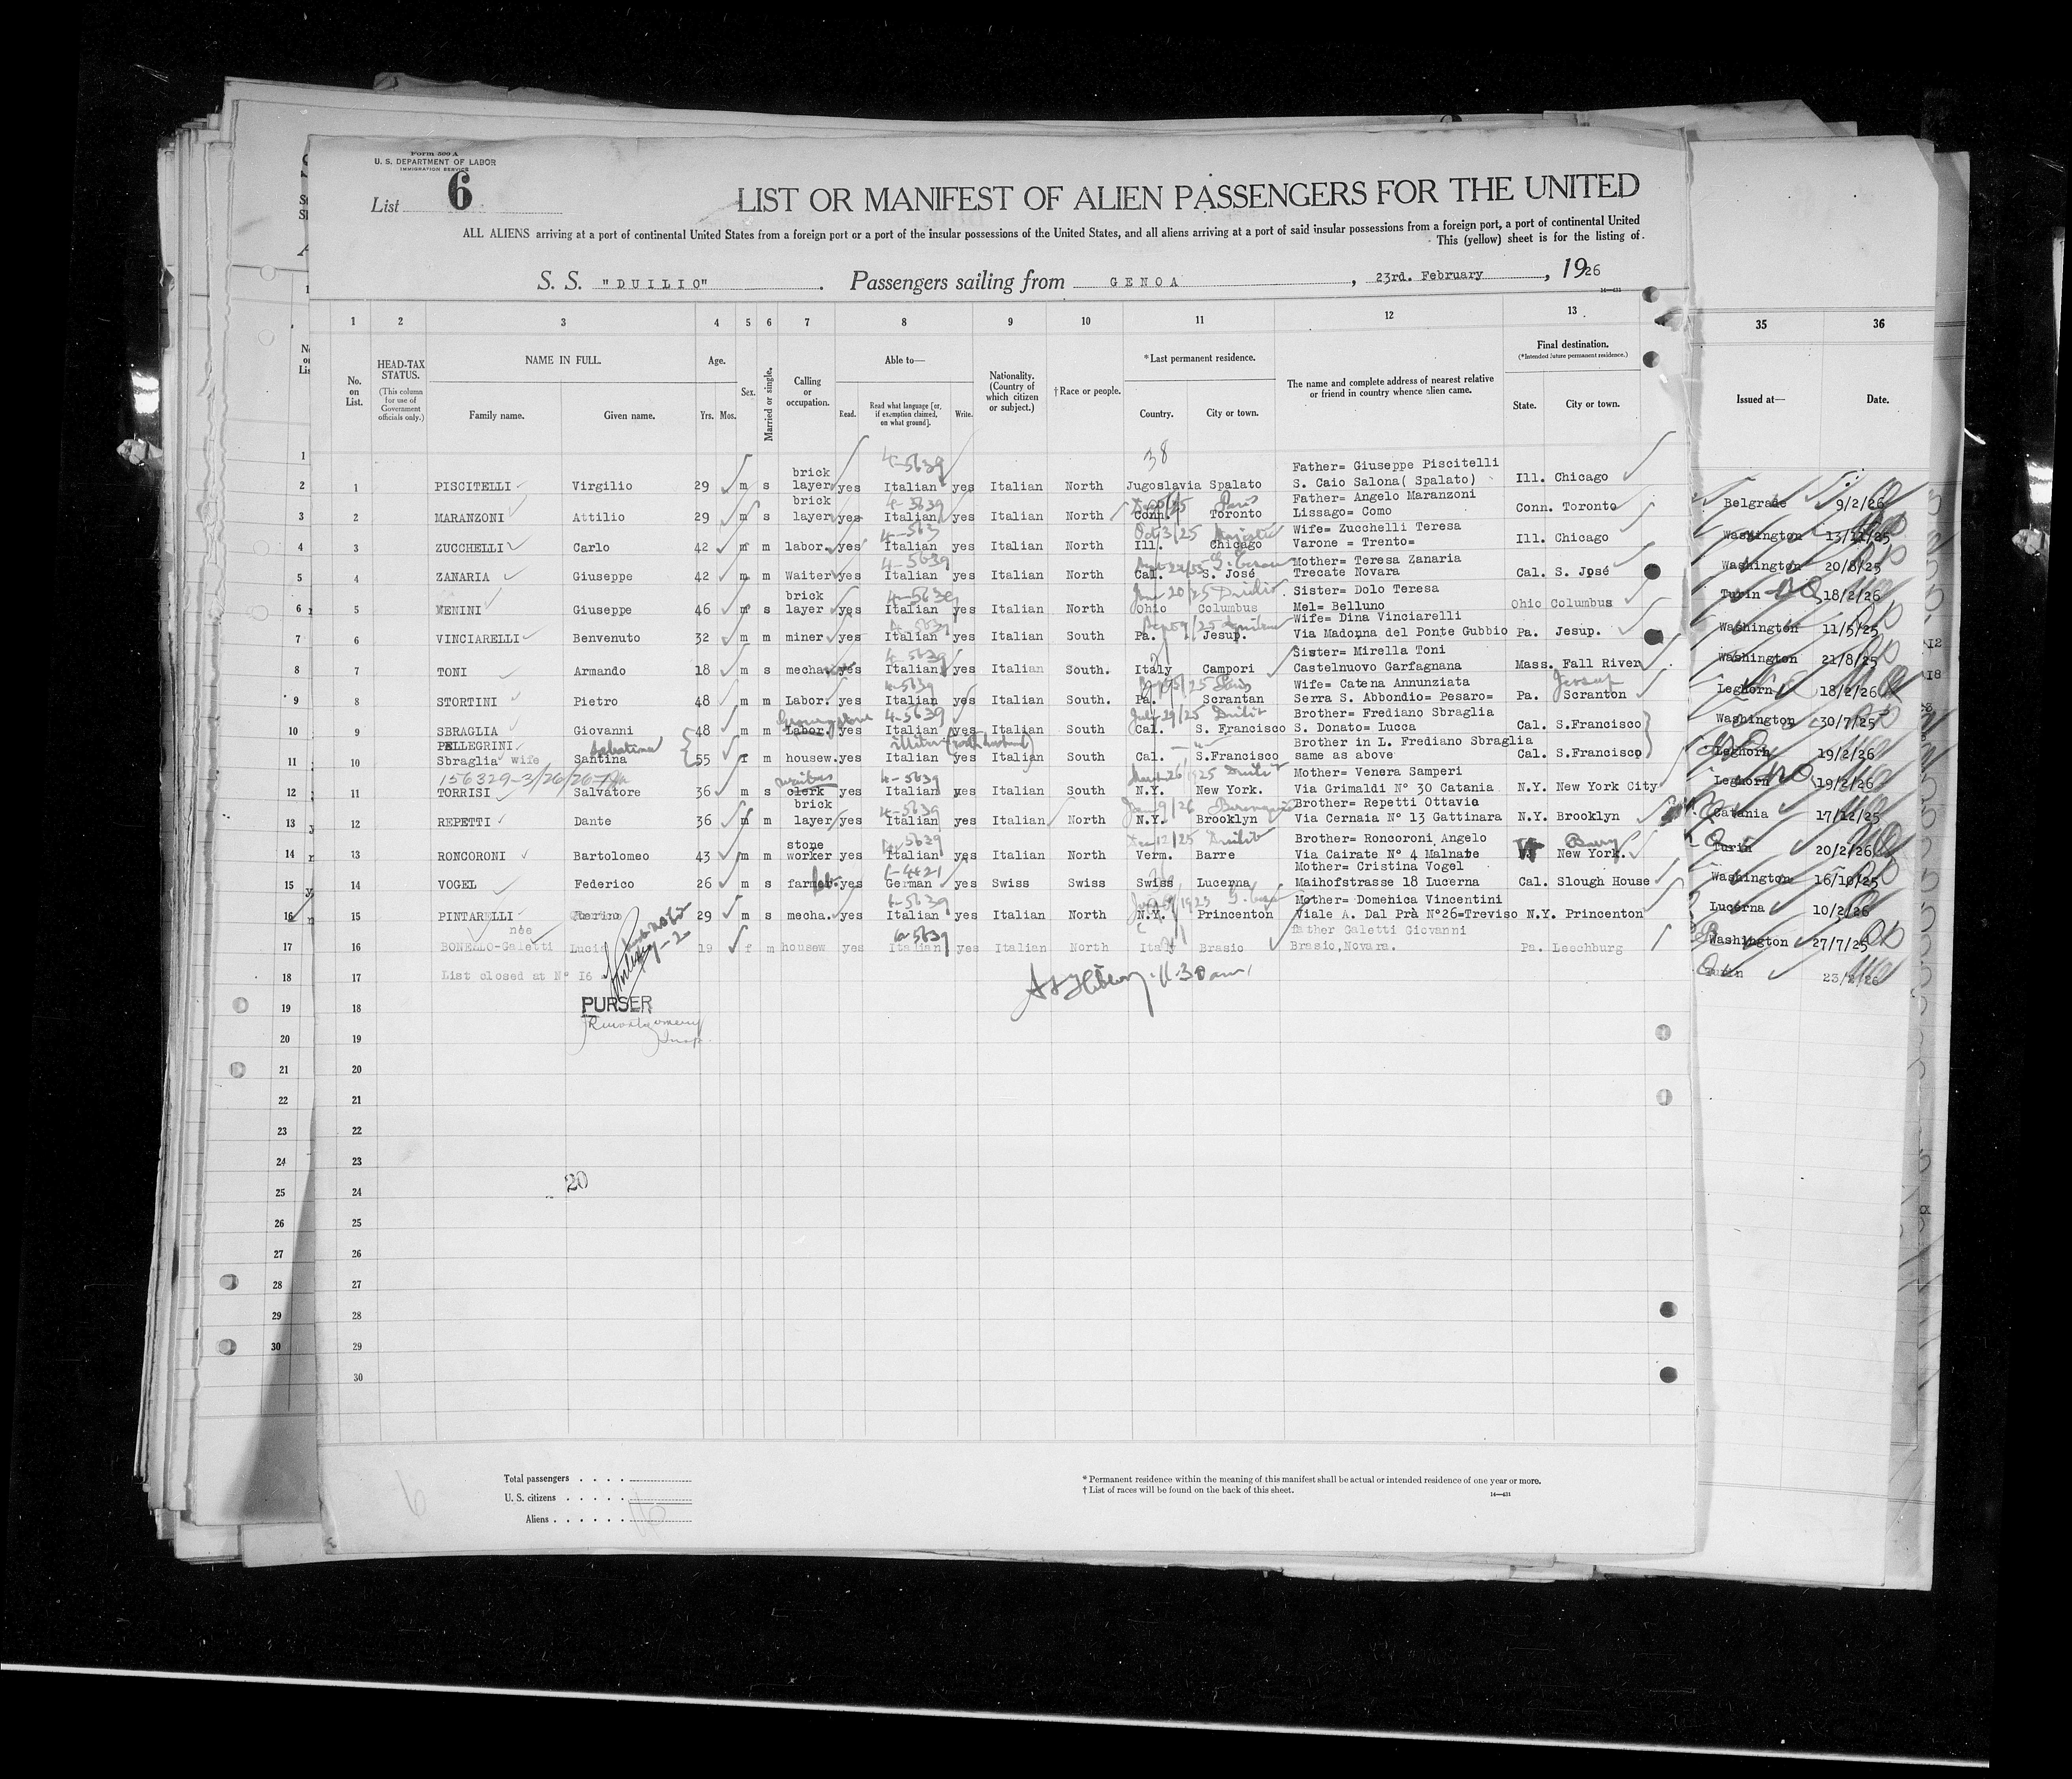 Form 500 A
U. S. DEPARTMENT OF LABOR
IMMIGRATION SERVICE
List 6
LIST OR MANIFEST OF ALIEN PASSENGERS FOR THE UNITED
ALL ALIENS arriving at a port of continental United States from a foreign port or a port of the insular possessions of the United States, and all aliens arriving at a port of said insular possessions from a foreign port, a port of continental United
This (yellow) sheet is for the listing of
S. S. "DUILIO". Passengers sailing from GENOA, 23rd. February, 1926
1 2 3 4 5 6 7 8 9 10 11 12 13 35 36
No. on List. HEAD-TAX STATUS. (This column for use of Government officials only.) NAME IN FULL. Family name. Given name. Age. Yrs. Mos. Sex. Married or single. Calling or occupation. Able to— Read. Read what language [or, if exemption claimed, on what ground]. Write. Nationality. (Country of which citizen or subject.) †Race or people. *Last permanent residence. Country. City or town. The name and complete address of nearest relative or friend in country whence alien came. Final destination. (*Intended future permanent residence.) State. City or town. Issued at— Date.
4-5639 38
1 PISCITELLI Virgilio 29 m s brick layer yes Italian yes Italian North Jugoslavia Spalato Father= Giuseppe Piscitelli S. Caio Salona( Spalato) Ill. Chicago Belgrade 9/2/26
4-5639
2 MARANZONI Attilio 29 m s brick layer yes Italian yes Italian North Conn. Toronto Father= Angelo Maranzoni Lissago= Como Conn. Toronto Washington 13/11/25
4-563 Oct 3/25 Majestic
3 ZUCCHELLI Carlo 42 m m labor. yes Italian yes Italian North Ill. Chicago Wife= Zucchelli Teresa Varone = Trento= Ill. Chicago Washington 20/8/25
4-5639
4 ZANARIA Giuseppe 42 m m Waiter yes Italian yes Italian North Cal. S. José Mother= Teresa Zanaria Trecate Novara Cal. S. José Turin 18/2/26
4-5639 20/25 Duilio
5 MENINI Giuseppe 46 m s brick layer yes Italian yes Italian North Ohio Columbus Sister= Dolo Teresa Mel= Belluno Ohio Columbus Washington 11/5/25
4-5639
6 VINCIARELLI Benvenuto 32 m m miner yes Italian yes Italian South Pa. Jesup. Wife= Dina Vinciarelli Via Madonna del Ponte Gubbio Pa. Jesup. Washington 21/8/25
4-5639
7 TONI Armando 18 m s mecha. yes Italian yes Italian South. Italy Campori Sister= Mirella Toni Castelnuovo Garfagnana Mass. Fall River Leghorn 18/2/26
4-5639 Paris Jessup
8 STORTINI Pietro 48 m m Labor. yes Italian yes Italian South. Pa. Scrantan Wife= Catena Annunziata Serra S. Abbondio= Pesaro= Pa. Scranton Washington 30/7/25
4-5639 July 29/25 Duilio
9 SBRAGLIA Giovanni 48 m m Labor. yes Italian yes Italian South Cal. S. Francisco Brother= Frediano Sbraglia S. Donato= Lucca Cal. S.Francisco Leghorn 19/2/26
10 PELLEGRINI Sbraglia wife Santina 55 f m housew. yes Italian yes Italian South Cal. S.Francisco Brother in L. Frediano Sbraglia same as above Cal. S.Francisco Leghorn 19/2/26
156329-3/26/26 4-5639 March 26/1925 Duilio
11 TORRISI Salvatore 36 m s clerk yes Italian yes Italian South N.Y. New York. Mother= Venera Samperi Via Grimaldi N° 30 Catania N.Y. New York City Catania 17/12/25
4-5639 Jan 9/26
12 REPETTI Dante 36 m m brick layer yes Italian yes Italian North N.Y. Brooklyn Brother= Repetti Ottavio Via Cernaia N° 13 Gattinara N.Y. Brooklyn Turin 20/2/26
4-5639 12/25 Duilio Barry
13 RONCORONI Bartolomeo 43 m m stone worker yes Italian yes Italian North Verm. Barre Brother= Roncoroni Angelo Via Cairate N° 4 Malnate New York. Washington 16/10/25
14 VOGEL Federico 26 m s farmer. yes German yes Swiss Swiss Swiss Lucerna Mother= Cristina Vogel Maihofstrasse 18 Lucerna Cal. Slough House Lucerna 10/2/26
4-5639
15 PINTARELLI 29 m s mecha. yes Italian yes Italian North N.Y. Princenton Mother= Domenica Vincentini Viale A. Dal Prà N°26=Treviso N.Y. Princenton Washington 27/7/25
née 4-5639
16 BONELLO-Galetti Lucia 19 f m housew yes Italian yes Italian North Italy Brasio father Galetti Giovanni Brasio,Novara. Pa. Leechburg Turin 23/2/26
17 List closed at N° I6
11.30 am
18 PURSER
19
20
21
22
23
24
20
25
26
27
28
29
30
Total passengers
U. S. citizens
Aliens
16
6
* Permanent residence within the meaning of this manifest shall be actual or intended residence of one year or more.
† List of races will be found on the back of this sheet.
14—431